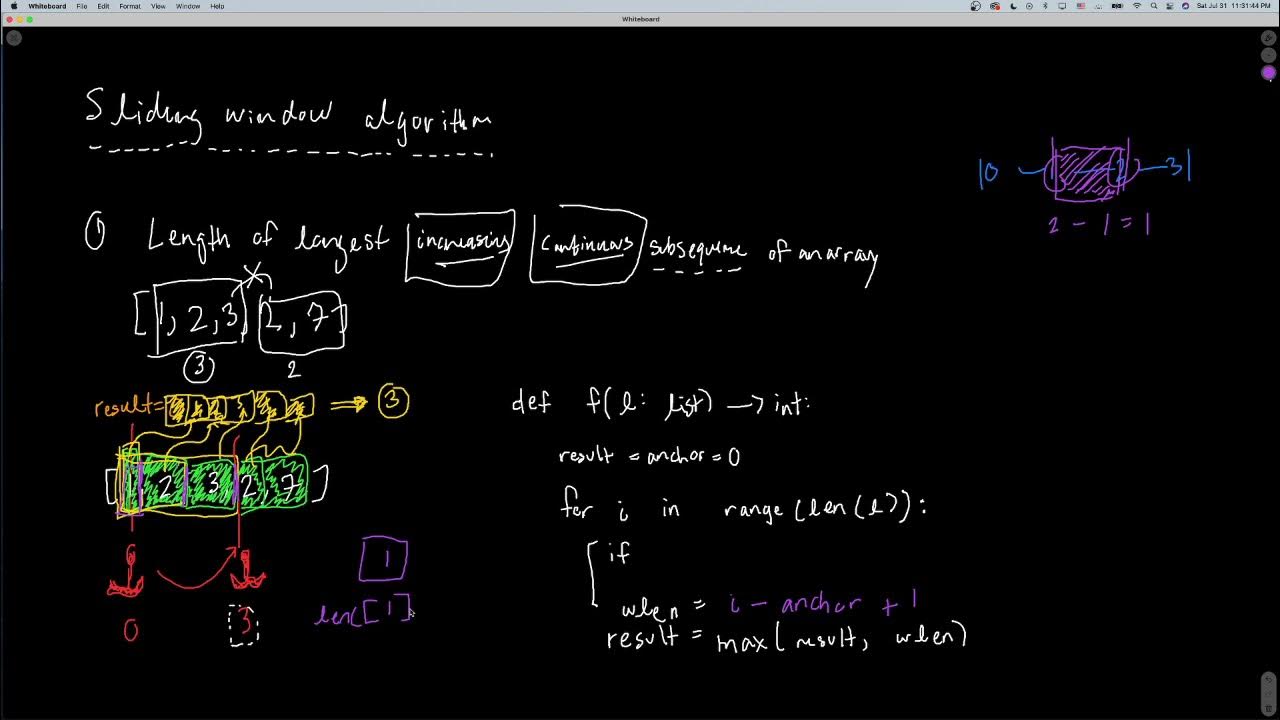 Whiteboard File Edit Format View Window Help Sat Jul 31 11:31:44 PM
Whiteboard
Sliding window algorithm
10 1 2 31
2 - 1 = 1
① Length of largest increasing continuous subsequence of an array
[1, 2, 3, 2, 7]
③ 2
result= ⇒ ③
def f(l: list) → int:
[1 2 3 2 7]
result = anchor = 0
for i in range(len(l)):
if
1
wlen = i - anchor + 1
len([1]
0 3
result = max(result, wlen)